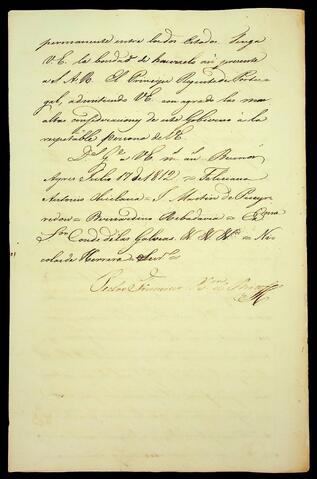 permanente entre los dos Estados. Tenga
V.E. la bondad de hacerlo así presente
a S.A.R. El Principe Regente de Portu-
gal, admitiendo V.E. con agrado las mas
altas consideraciones de este Gobierno à la
respetable persona de V.E.
Dios gue a V.E. ms as Buenos
Ayres Julio 17 de 1812,, = Feliciano
Antonio Chiclana = J. Martin de Pueyr-
redon = Bernardino Ribadavia = Exmo
Sor Conde de las Galveas. = Ni-
colas de Herrera
Pedro Francisco